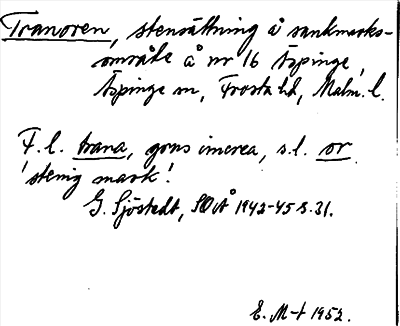 Tranoren, stensättning å sankmarks-
område å nr 16 Äspinge,
Äspinge sn, Frosta hd, Malm. l.
F. l. trana, grus cinerea, s. l. or
'stenig mark'.
G. Sjöstedt, SOÅ 1942-45 s. 31.
E. M-t 1952.